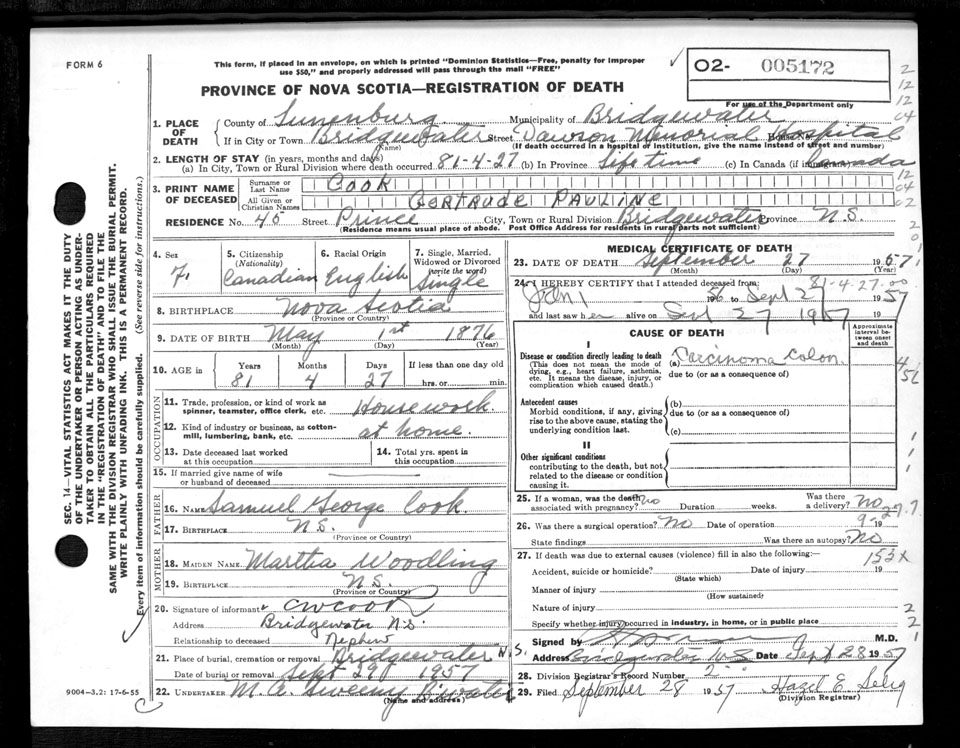 FORM 6
This form, if placed in an envelope, on which is printed "Dominion Statistics—Free, penalty for improper
use $50," and properly addressed will pass through the mail "FREE"
O2- 005172
PROVINCE OF NOVA SCOTIA—REGISTRATION OF DEATH
For use of the Department only
1. PLACE OF DEATH
County of Lunenburg Municipality of Bridgewater
If in City or Town Bridgewater Street Dawson Memorial Hospital House No.
(Name) (If death occurred in a hospital or institution, give the name instead of street and number)
2. LENGTH OF STAY (in years, months and days)
(a) In City, Town or Rural Division where death occurred 81-4-27 (b) In Province Life time (c) In Canada (if immigrant) Canada
3. PRINT NAME OF DECEASED
Surname or Last Name COOK
All Given or Christian Names GERTRUDE PAULINE
RESIDENCE No. 45 Street Prince City, Town or Rural Division Bridgewater Province N.S.
(Residence means usual place of abode. Post Office Address for residents in rural parts not sufficient)
4. Sex F.
5. Citizenship (Nationality) Canadian
6. Racial Origin English
7. Single, Married, Widowed or Divorced (write the word) Single
8. BIRTHPLACE Nova Scotia
(Province or Country)
9. DATE OF BIRTH May 1st 1876
(Month) (Day) (Year)
10. AGE in Years 81 Months 4 Days 27 If less than one day old hrs. or min.
OCCUPATION
11. Trade, profession, or kind of work as spinner, teamster, office clerk, etc. Housework.
12. Kind of industry or business, as cotton-mill, lumbering, bank, etc. at home.
13. Date deceased last worked at this occupation
14. Total yrs. spent in this occupation
15. If married give name of wife or husband of deceased —
FATHER
16. NAME Samuel George Cook
17. BIRTHPLACE N.S.
(Province or Country)
MOTHER
18. MAIDEN NAME Martha Woodling
19. BIRTHPLACE N.S.
(Province or Country)
20. Signature of informant CW Cook
Address Bridgewater N.S.
Relationship to deceased Nephew
21. Place of burial, cremation or removal Bridgewater N.S.
Date of burial or removal Sept 29 1957
22. UNDERTAKER M. A. Sweeny B'water
(Name and address)
9004—3.2: 17-6-55
MEDICAL CERTIFICATE OF DEATH
23. DATE OF DEATH September 27 1957
(Month) (Day) (Year)
24. I HEREBY CERTIFY that I attended deceased from:
81-4-27-00
Jan 1 1956 to Sept 27 1957
and last saw her alive on Sept 27 1957
CAUSE OF DEATH
Approximate interval between onset and death
I
Disease or condition directly leading to death (a) Carcinoma Colon.
(This does not mean the mode of dying, e.g., heart failure, asthenia, etc. It means the disease, injury, or complication which caused death.)
due to (or as a consequence of)
Antecedent causes
Morbid conditions, if any, giving rise to the above cause, stating the underlying condition last.
(b)
due to (or as a consequence of)
(c)
II
Other significant conditions
contributing to the death, but not related to the disease or condition causing it.
25. If a woman, was the death associated with pregnancy? no Duration weeks. Was there a delivery? no
26. Was there a surgical operation? No Date of operation 19
State findings Was there an autopsy? No
27. If death was due to external causes (violence) fill in also the following:—
153X
Accident, suicide or homicide? Date of injury 19
(State which)
Manner of injury
(How sustained)
Nature of injury
Specify whether injury occurred in industry, in home, or in public place
Signed by M.D.
Address Bridgewater NS Date Sept 28 1957
28. Division Registrar's Record Number
29. Filed September 28 1957 Hazel E. Selig
(Division Registrar)
SEC. 14—VITAL STATISTICS ACT MAKES IT THE DUTY
OF THE UNDERTAKER OR PERSON ACTING AS UNDER-
TAKER TO OBTAIN ALL THE PARTICULARS REQUIRED
IN THE "REGISTRATION OF DEATH" AND TO FILE THE
SAME WITH THE DIVISION REGISTRAR WHO SHALL ISSUE THE BURIAL PERMIT.
WRITE PLAINLY WITH UNFADING INK. THIS IS A PERMANENT RECORD.
Every item of information should be carefully supplied. (See reverse side for instructions.)